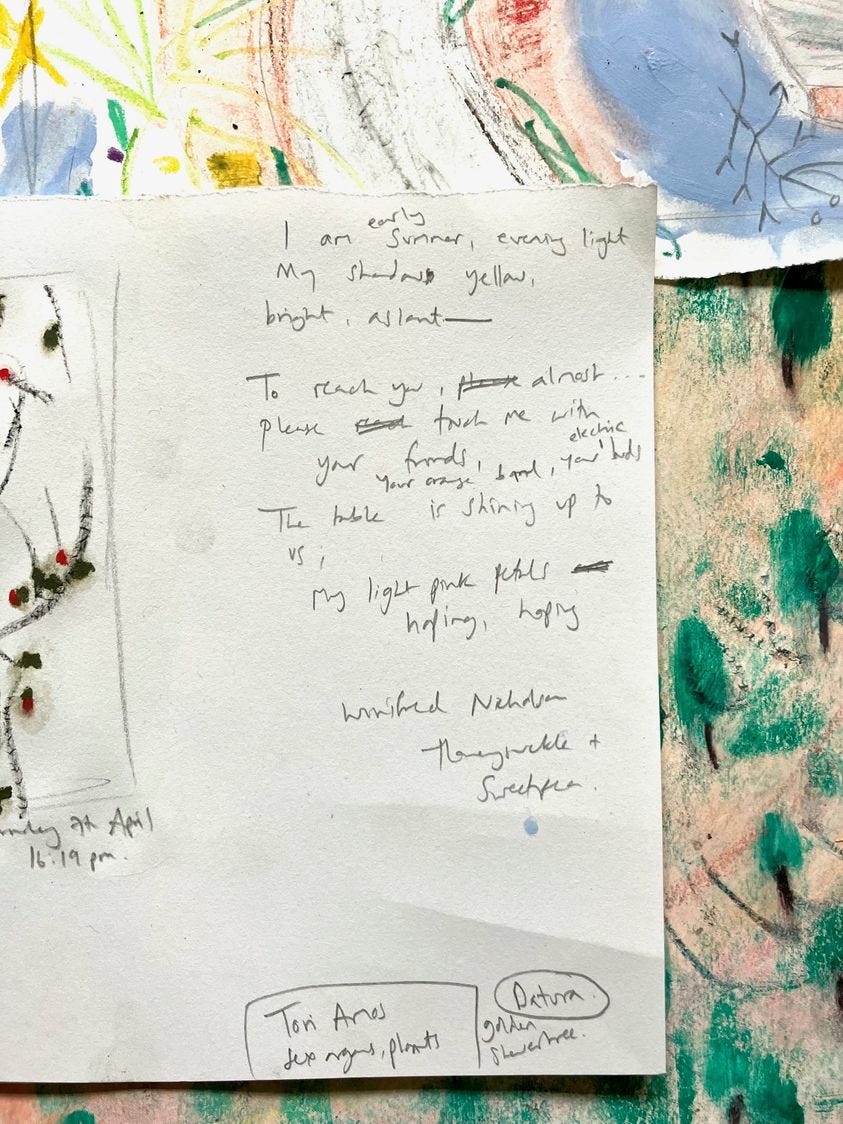 I am early Summer, evening light
My shadows yellow,
bright, aslant—
To reach you, almost...
please touch me with
your fronds,
your orange band, your electric buds
The table is shining up to
us;
My light pink petals
hoping, hoping
Winifred Nicholson
Honeysuckle +
Sweetpea.
7th April
16:19 pm.
Datura.
Tori Amos
sex organs, plants
golden
Showertree.